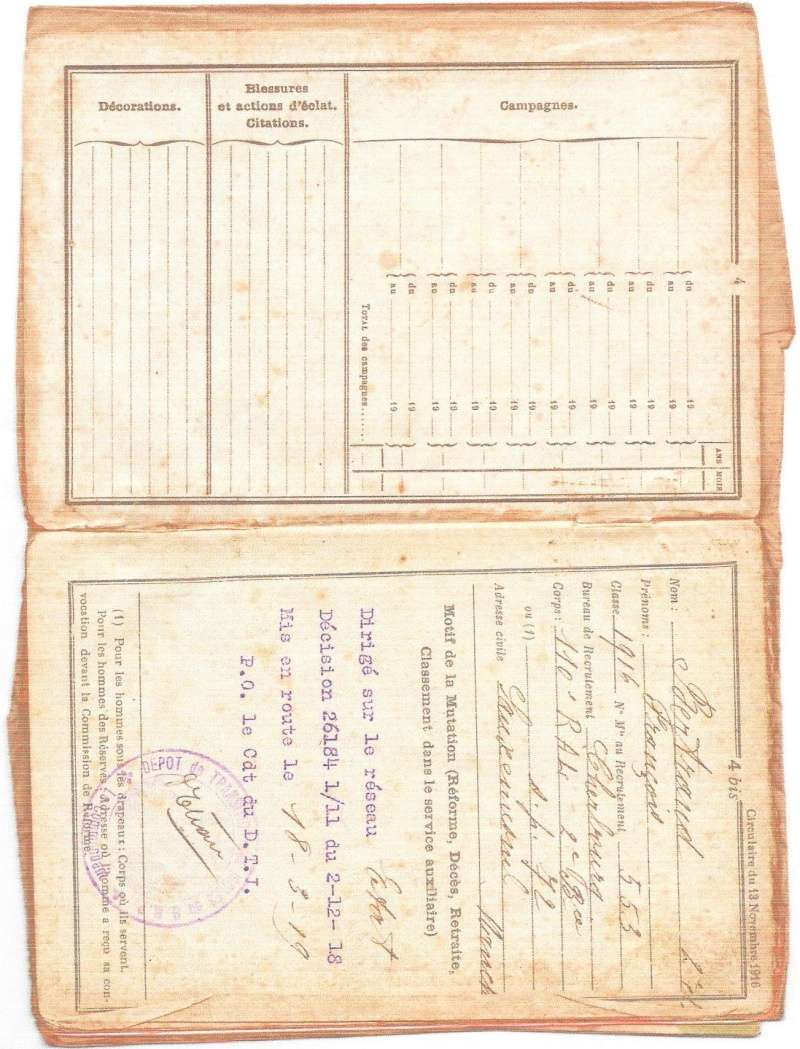 4
Décorations.
Blessures
et actions d'éclat.
Citations.
Campagnes.
ANS
MOIS
du 19
au 19
du 19
au 19
du 19
au 19
du 19
au 19
du 19
au 19
du 19
au 19
du 19
au 19
du 19
au 19
TOTAL des campagnes......
Circulaire du 13 Novembre 1916
4 bis
Nom : Bertrand
Prénoms : François
Classe 1916 N° Mle au Recrutement 553
Bureau de Recrutement Cherbourg
Corps : 110e 2e Bie
ou (1)
Adresse civile
Motif de la Mutation (Réforme, Décès, Retraite,
Classement dans le service auxiliaire)
Dirigé sur le réseau
Décision 26184 1/11 du 2-12-18
Mis en route le 18-3-19
P.O. le Cdt du D.T.J.
DEPOT de
(1) Pour les hommes sous les drapeaux : Corps où ils servent.
Pour les hommes des Réserves : Adresse où l'homme a reçu sa con-
vocation devant la Commission de Réforme.